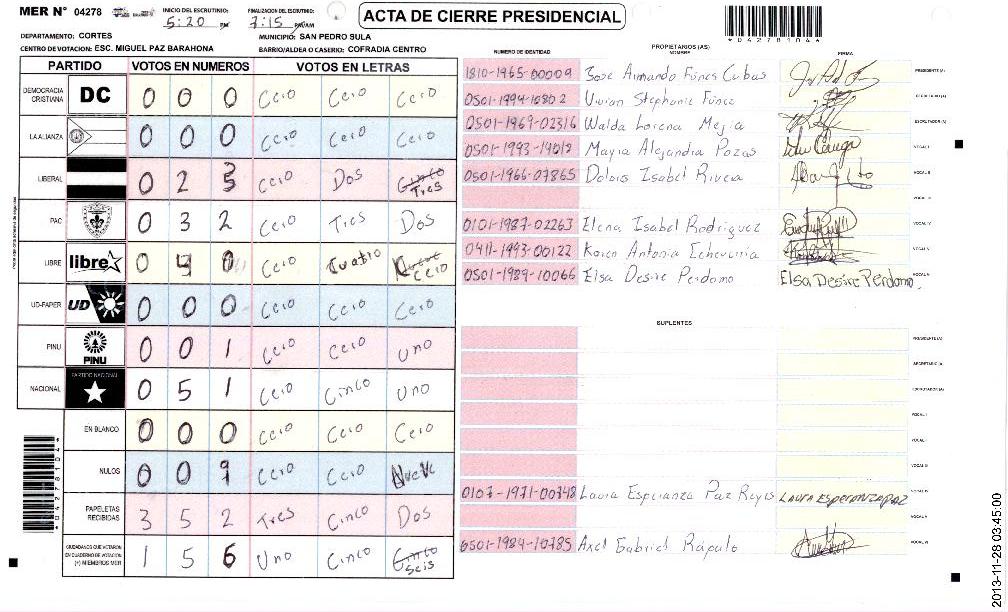 MER Nº 04278 INICIO DEL ESCRUTINIO: 5:20 PM FINALIZACION DEL ESCRUTINIO: 7:15 PM/AM
ACTA DE CIERRE PRESIDENCIAL
*04278104*
DEPARTAMENTO: CORTES MUNICIPIO: SAN PEDRO SULA
CENTRO DE VOTACION: ESC. MIGUEL PAZ BARAHONA BARRIO/ALDEA O CASERIO: COFRADIA CENTRO
PARTIDO VOTOS EN NUMEROS VOTOS EN LETRAS
DEMOCRACIA CRISTIANA DC 0 0 0 Cero Cero Cero
LA ALIANZA 0 0 0 Cero Cero Cero
LIBERAL 0 2 3 Cero Dos Cinco Tres
PAC 0 3 2 Cero Tres Dos
LIBRE libre 0 4 0 Cero Cuatro Cero
UD-FAPER UD 0 0 0 Cero Cero Cero
PINU PINU 0 0 1 Cero Cero uno
NACIONAL PARTIDO NACIONAL 0 5 1 Cero Cinco uno
EN BLANCO 0 0 0 Cero Cero Cero
NULOS 0 0 9 Cero Cero Nueve
PAPELETAS RECIBIDAS 3 5 2 Tres Cinco Dos
CIUDADANOS QUE VOTARON EN CUADERNO DE VOTACION (+) MIEMBROS MER 1 5 6 Uno Cinco Cinco Seis
NUMERO DE IDENTIDAD PROPIETARIOS (AS) NOMBRE FIRMA
1810-1965-00009 Jose Armando Fúnes Cubas PRESIDENTE (A)
0501-1994-10802 Vivian Stephanie Fúnez SECRETARIO (A)
0501-1969-02316 Walda Lorena Mejia ESCRUTADOR (A)
0501-1993-14018 Mayra Alejandra Pozas VOCAL I
0501-1966-07865 Isabel Rivera VOCAL II
VOCAL III
0101-1987-02263 Elena Isabel Rodriguez VOCAL IV
0411-1993-00122 Karen Antonia Echeverria VOCAL V
0501-1989-10066 Elsa Desire Perdomo Elsa Desire Perdomo.
SUPLENTES
PRESIDENTE (A)
SECRETARIO (A)
ESCRUTADOR (A)
VOCAL I
VOCAL II
VOCAL III
0107-1971-00748 Laura Esperanza Paz Reyes Laura Esperanza Paz VOCAL IV
VOCAL V
0501-1984-10785 Axel Gabriel Rápalo VOCAL VI
*04278104*
2013-11-28 03:45:00